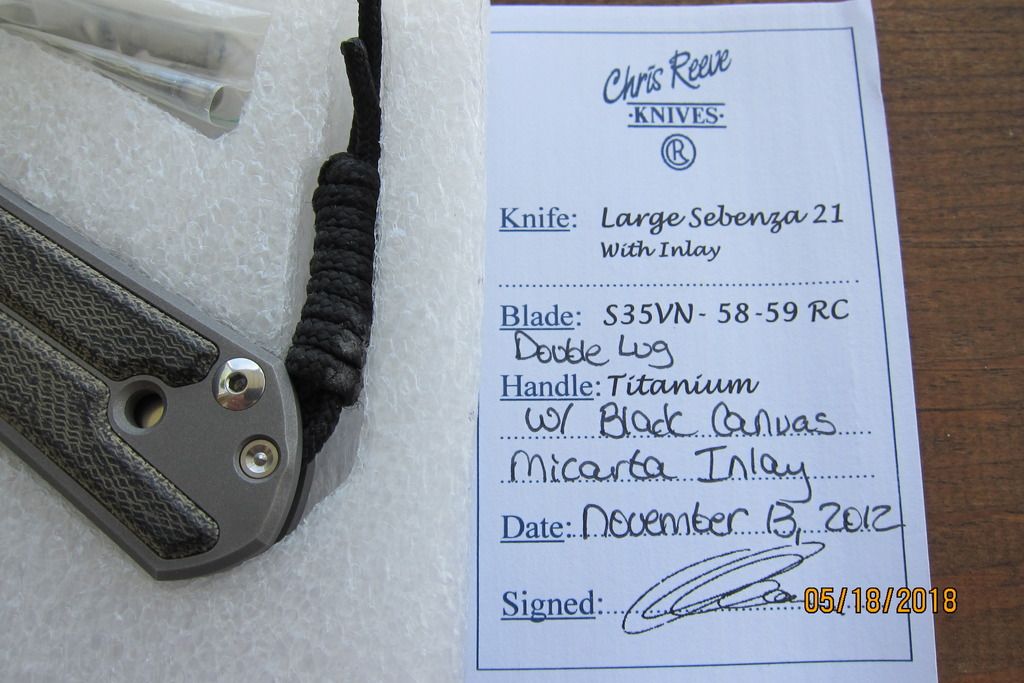 Chris Reeve
·KNIVES·
®
Knife: Large Sebenza 21
With Inlay
Blade: S35VN - 58-59 RC
Double Lug
Handle: Titanium
w/ Black Canvas
Micarta Inlay
Date: November 13, 2012
Signed:
05/18/2018